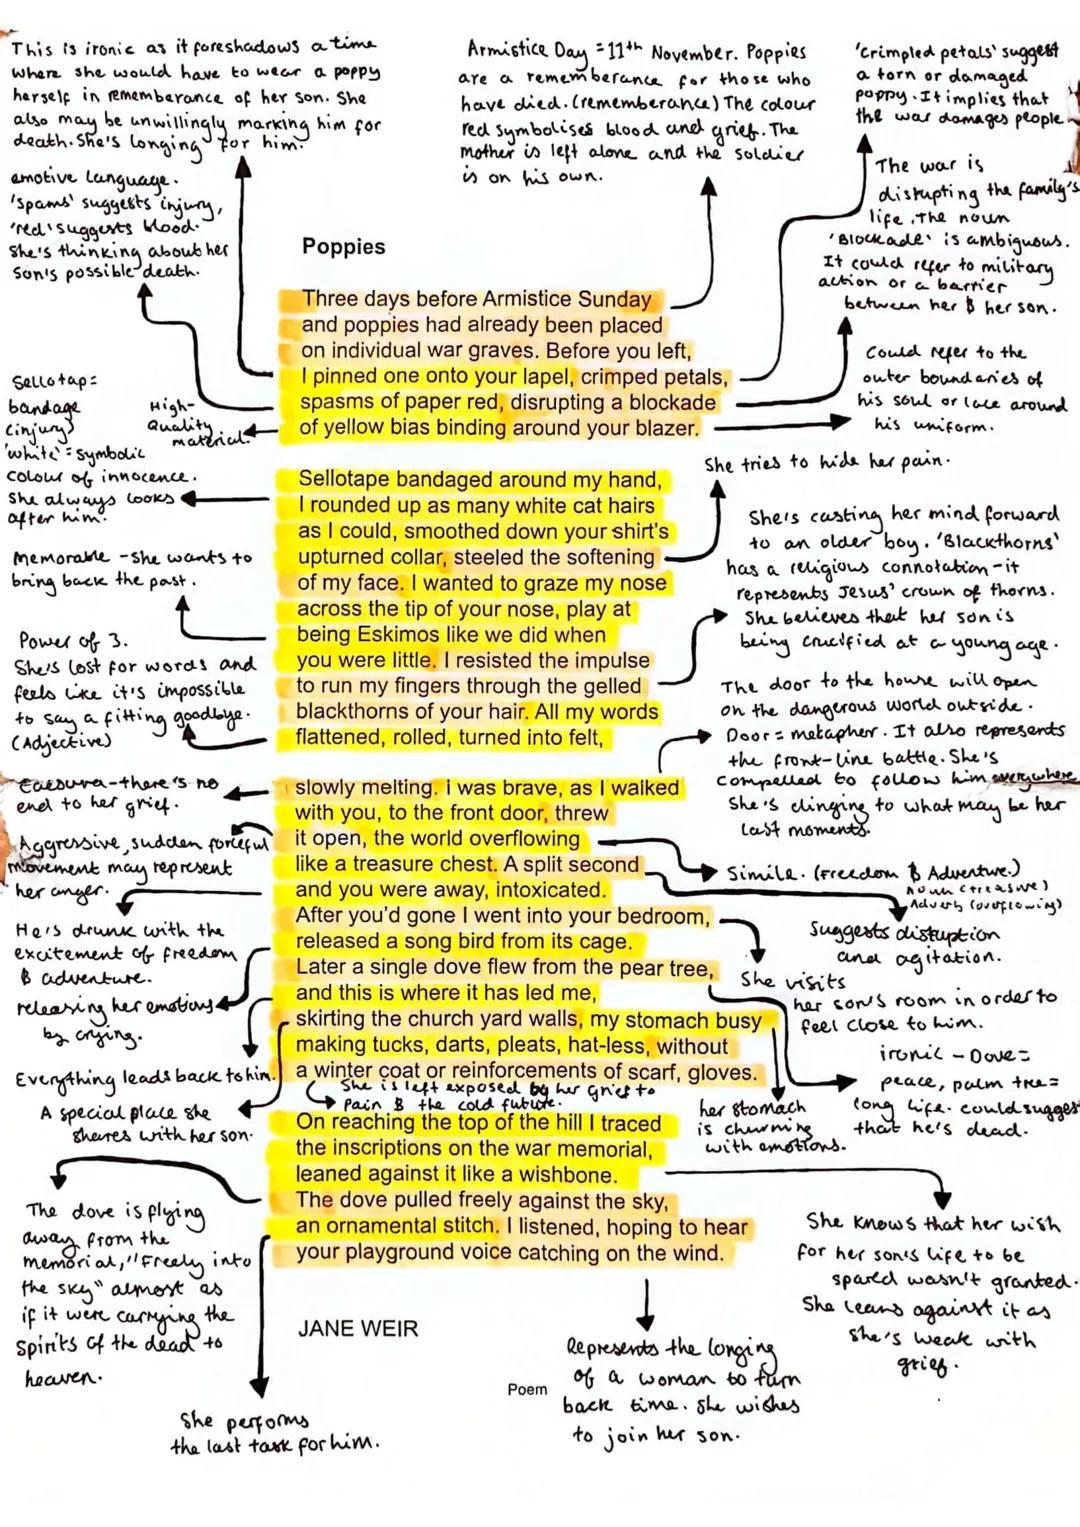 This is ironic as it foreshadows a time
where she would have to wear a poppy
herself in rememberance of her son. She
also may be unwillingly marking him for
death. She's longing for him.
Armistice Day = 11th November. Poppies
are a rememberance for those who
have died. (rememberance) The colour
red symbolises blood and grief. The
Mother is left alone and the soldier
is on his own.
'Crimpled petals' suggest
a torn or damaged
poppy. It implies that
the war damages people.
emotive language.
'spams' suggests injury,
'red' suggests blood.
She's thinking about her
son's possible death.
The war is
disrupting the family's
life. The noun
'Blockade' is ambiguous.
It could refer to military
action or a barrier
between her & her son.
Poppies
Three days before Armistice Sunday
and poppies had already been placed
on individual war graves. Before you left,
I pinned one onto your lapel, crimped petals,
spasms of paper red, disrupting a blockade
of yellow bias binding around your blazer.
Could refer to the
outer boundaries of
his soul or lace around
his uniform.
Sellotap=
bandage
(injury)
'white' = symbolic
colour of innocence.
She always looks
after him.
High-
Quality
material.
She tries to hide her pain.
Sellotape bandaged around my hand,
I rounded up as many white cat hairs
as I could, smoothed down your shirt's
upturned collar, steeled the softening
of my face. I wanted to graze my nose
across the tip of your nose, play at
being Eskimos like we did when
you were little. I resisted the impulse
to run my fingers through the gelled
blackthorns of your hair. All my words
flattened, rolled, turned into felt,
Memorable - she wants to
bring back the past.
She's casting her mind forward
to an older boy. 'Blackthorns'
has a religious connotation - it
represents Jesus' crown of thorns.
She believes that her son is
being crucified at a young age.
Power of 3.
She's lost for words and
feels like it's impossible
to say a fitting goodbye.
(Adjective)
The door to the house will open
on the dangerous world outside.
Door = metapher. It also represents
the front-line battle. She's
compelled to follow him everywhere
She's clinging to what may be her
last moments.
Caesura - there's no
end to her grief.
slowly melting. I was brave, as I walked
with you, to the front door, threw
it open, the world overflowing
like a treasure chest. A split second
and you were away, intoxicated.
After you'd gone I went into your bedroom,
released a song bird from its cage.
Later a single dove flew from the pear tree,
and this is where it has led me,
skirting the church yard walls, my stomach busy
making tucks, darts, pleats, hat-less, without
a winter coat or reinforcements of scarf, gloves.
Aggressive, sudden forceful
movement may represent
her anger.
Simile. (Freedom & Adventure.)
noun (treasure)
Adverb (overflowing)
He's drunk with the
excitement of freedom
& adventure.
Suggests distuption
and agitation.
releasing her emotions
by crying.
She visits
her son's room in order to
feel close to him.
Everything leads back to him.
ironic - Dove =
peace, palm tree =
long life. could suggest
that he's dead.
A special place she
shares with her son.
She is left exposed by her grief to
pain & the cold future.
her stomach
is churning
with emotions.
On reaching the top of the hill I traced
the inscriptions on the war memorial,
leaned against it like a wishbone.
The dove pulled freely against the sky,
an ornamental stitch. I listened, hoping to hear
your playground voice catching on the wind.
The dove is flying
away from the
memorial, "Freely into
the sky" almost as
if it were carrying the
spirits of the dead to
heaven.
She knows that her wish
for her son's life to be
spared wasn't granted.
She leans against it as
she's weak with
grief.
JANE WEIR
Represents the longing
of a woman to turn
back time. She wishes
to join her son.
Poem
She performs
the last task for him.